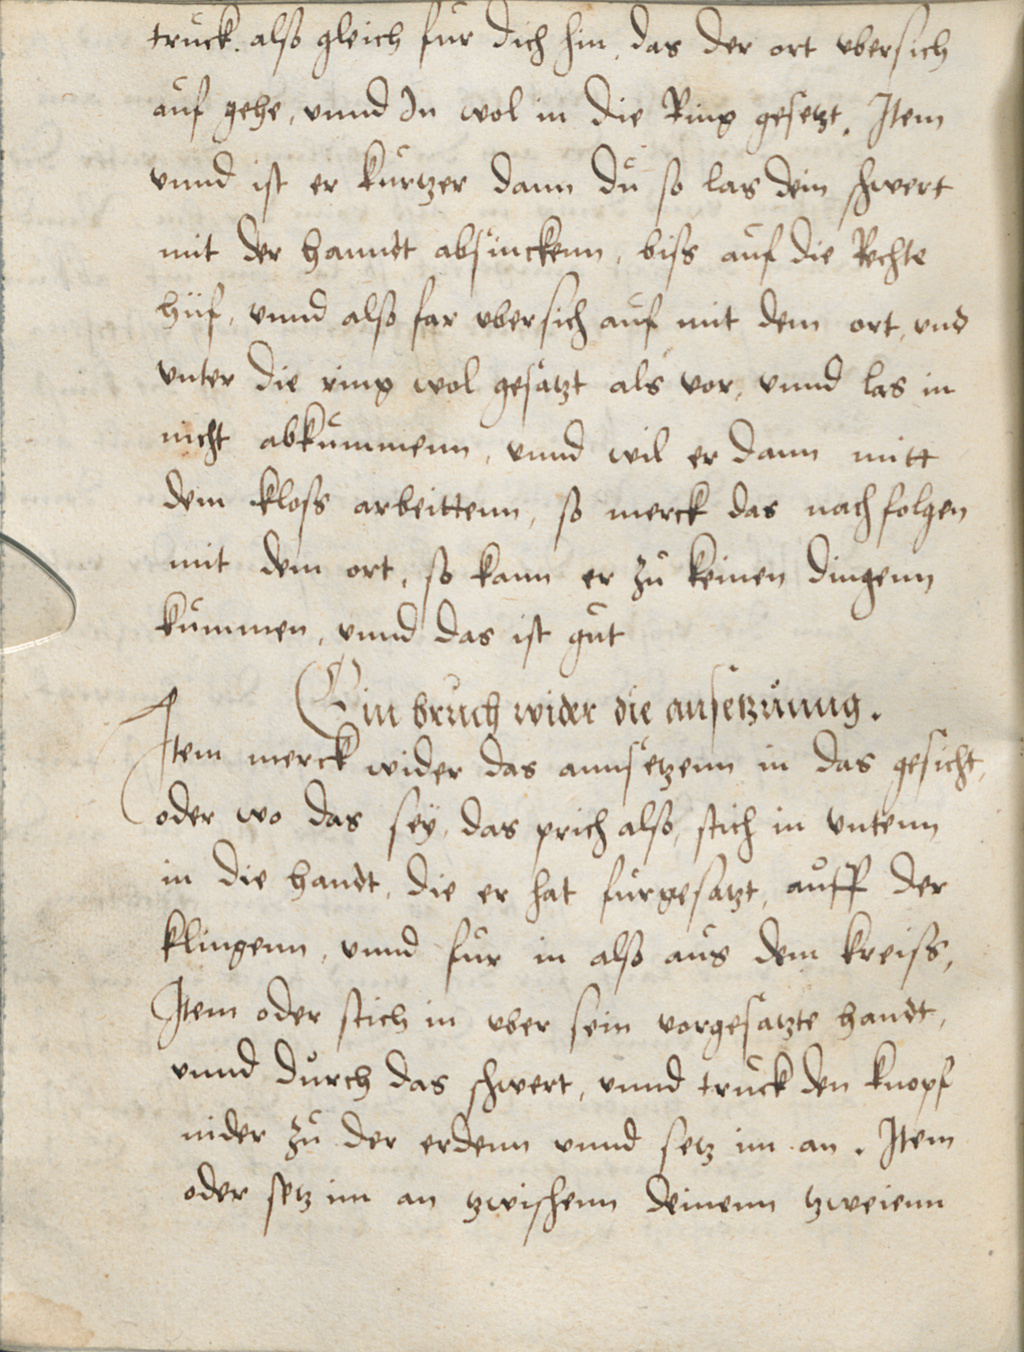 truck. also gleich fur dich hin, das der ort vbersich
auf gehe, vnnd In wol in die Ring gesetzt. Item
vnnd ist er kurtzer dann du so las dein schwert
mit der hanndt absinckenn, biss auf die Rechte
hüf, vnnd also far vbersich auf mit dem ort, vnd
vnter die ring wol gesatzt als vor, vnnd las in
nicht abkummenn, vnnd wil er dann mitt
dem kloss arbeittenn, so merck das nach folgen
mit dem ort, so kann er zu keinen dingenn
kummen, vnnd das ist gut
Ein bruch wider die ansetzunng.
Item merck wider das annsetzenn in das gesicht,
oder wo das seÿ, das prich also, stich in vntenn
in die handt, die er hat furgesatzt, auff der
klingenn, vnnd fur in also aus dem kreiss,
Item oder stich in vber sein vorgesatzte handt,
vnnd durch das schwert, vnnd truck den knopf
nider zu der erdenn vnnd setz im an. Item
oder setz im an tzwischenn deinenn tzweienn